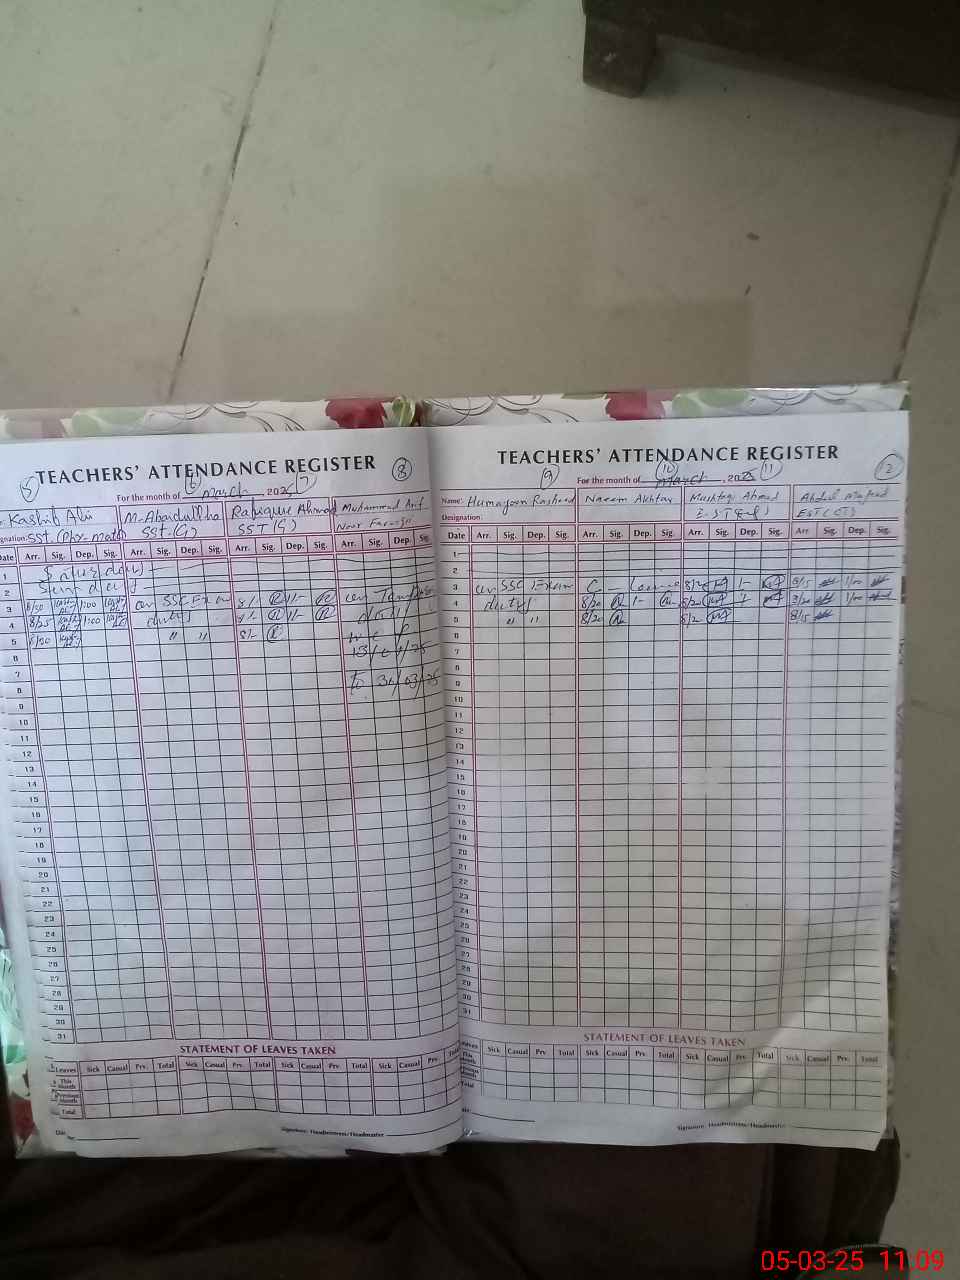 TEACHERS' ATTENDANCE REGISTER
5 6 7 8
For the month of March, 2025
Kashif Ali M. Abaidullha Rafique Ahmad Muhammad Arif
SSt. (Phy-math) SSt. (G) SST (G)
Date Arr. Sig. Dep. Sig. Arr. Sig. Dep. Sig. Arr. Sig. Dep. Sig. Arr. Sig. Dep Sig.
1 Saturday
2 Sunday
3 8/30 1:00 on SSC Exam 8/- 1/- on
4 8/25 1:00 duty 1/- duty
5 8/20 " " 8/- w.e.f
6 13/01/25
7
8 To 30/03/25
9
10
11
12
13
14
15
16
17
18
19
20
21
22
23
24
25
26
27
28
29
30
31
STATEMENT OF LEAVES TAKEN
Leaves Sick Casual Prv. Total Sick Casual Prv. Total Sick Casual Prv. Total Sick Casual Prv. Total
This Month
Previous Month
Total
Signature: Headmistress/Headmaster
TEACHERS' ATTENDANCE REGISTER
9 10 11 12
For the month of March 2025
Name: Humayoon Rasheed Naeem Akhtar Mushtaq Ahmad Abdul Majeed
Designation:
Date Arr. Sig. Dep. Sig. Arr. Sig. Dep. Sig. Arr. Sig. Dep. Sig. Arr. Sig. Dep. Sig.
1
2
3 on SSC Exam C_Leave 8/20 1- 8/15 1/00
4 duty 8/20 1- 8/20 1- 1/00
5 " " 8/20 8/20 8/15
6
7
8
9
10
11
12
13
14
15
16
17
18
19
20
21
22
23
24
25
26
27
28
29
30
31
STATEMENT OF LEAVES TAKEN
Leaves Sick Casual Prv. Total Sick Casual Prv. Total Sick Casual Prv. Total Sick Casual Prv. Total
This Month
Total
Signature: Headmistress/Headmaster
05-03-25 11:09